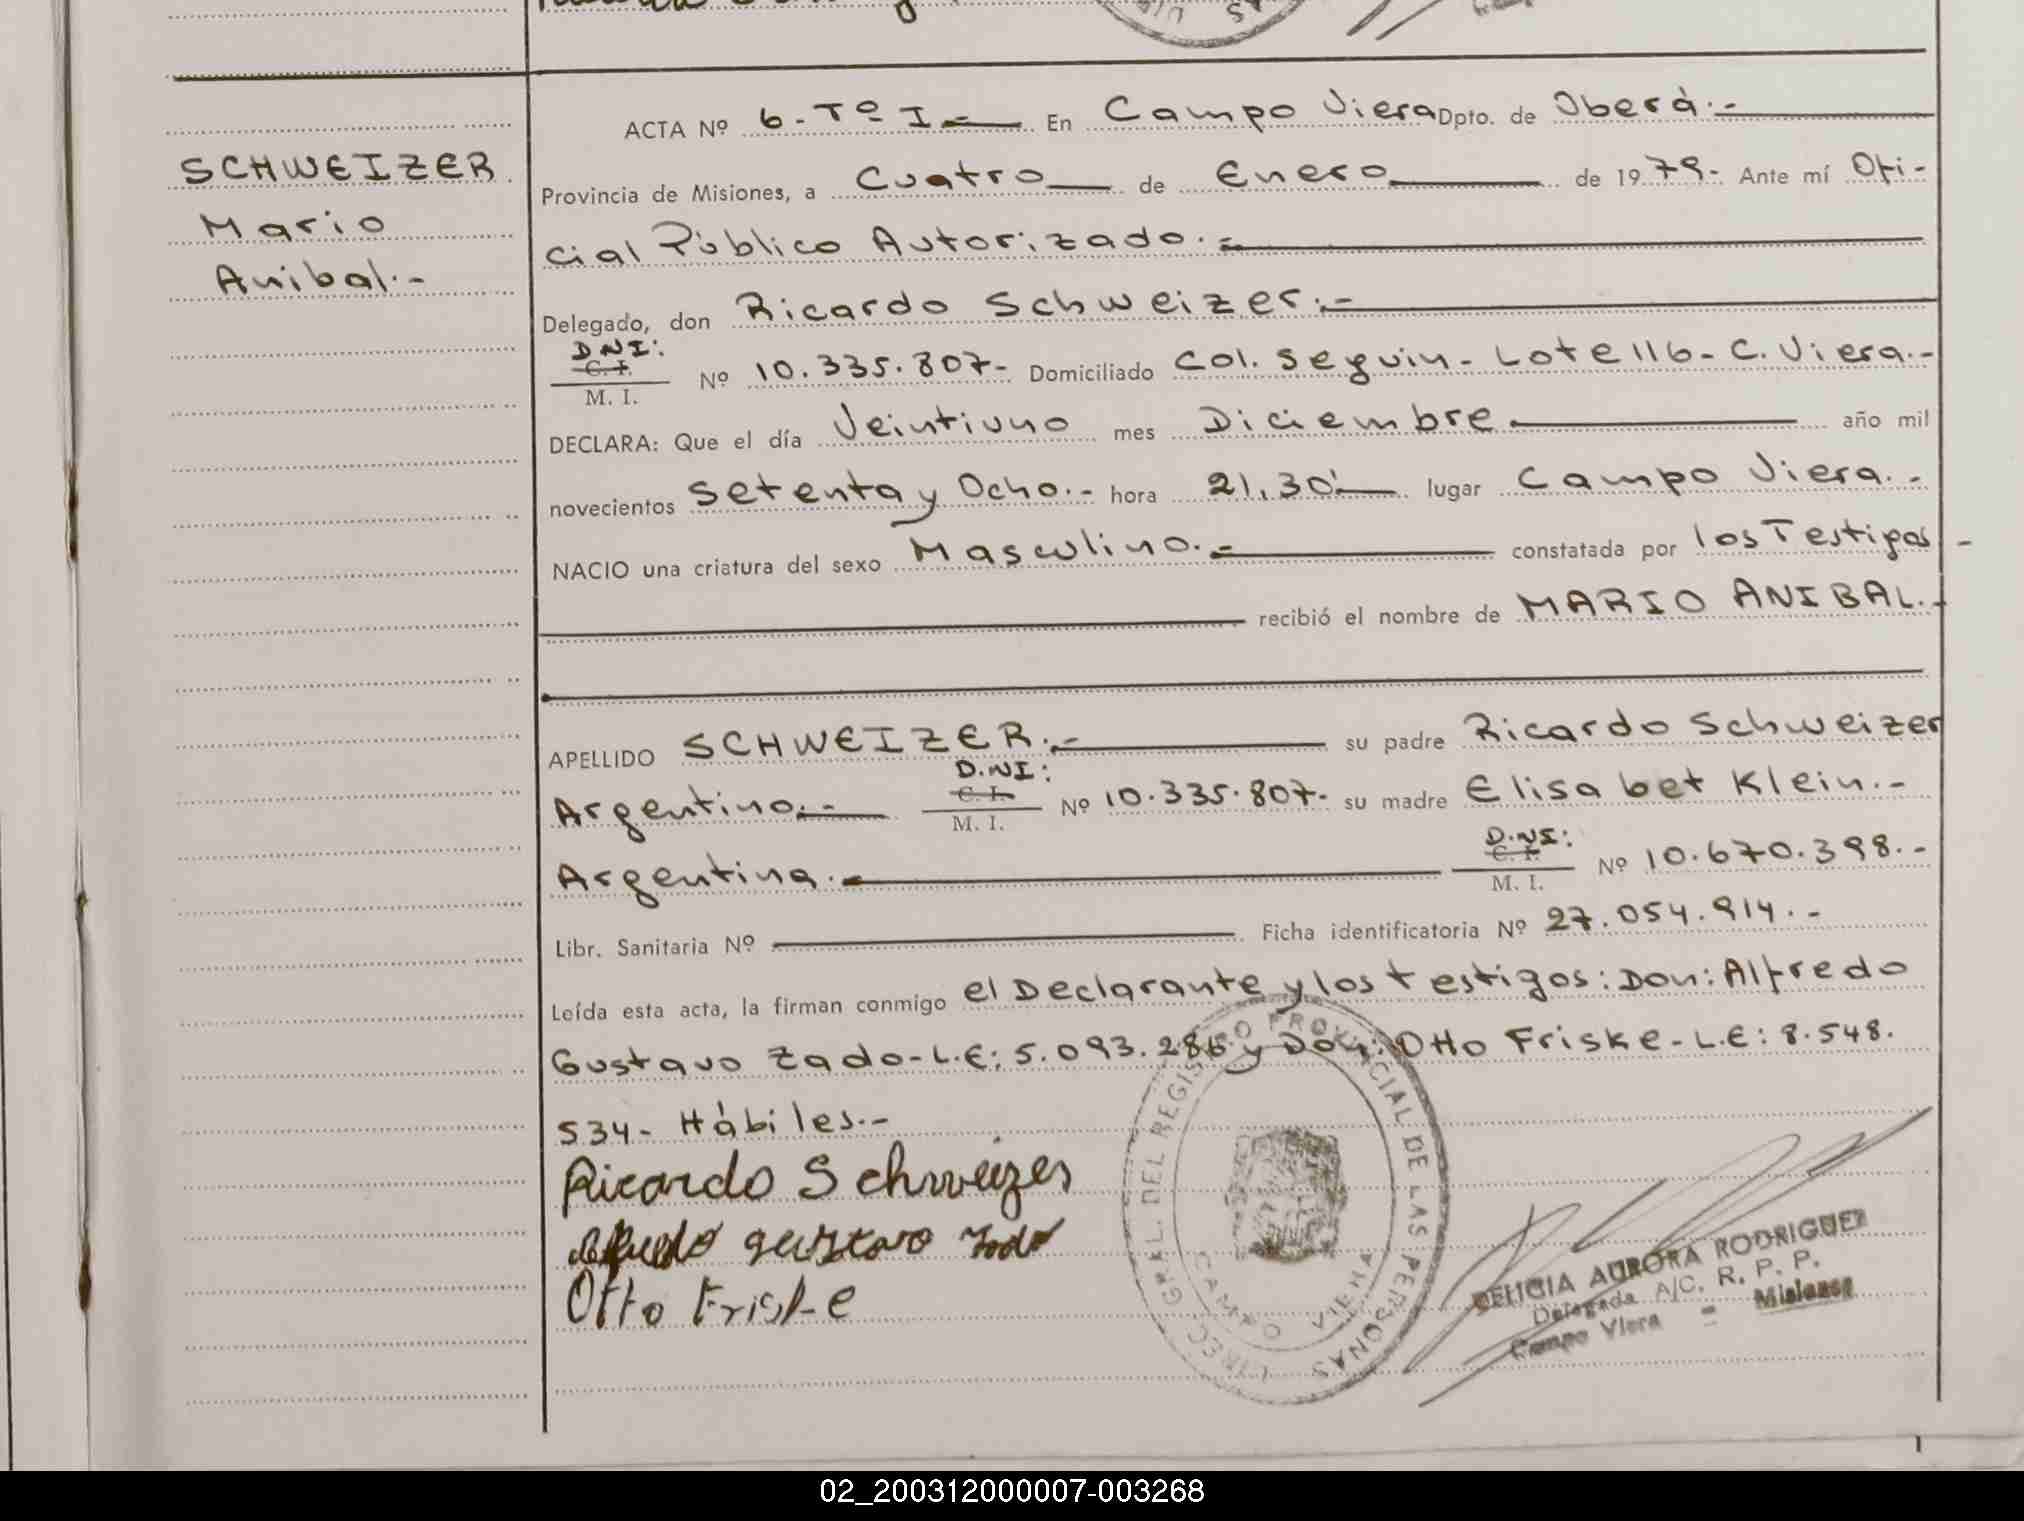 SCHWEIZER
Mario
Anibal.-
ACTA Nº 6-Tº I.- En Campo Viera Dpto. de Oberá.-
Provincia de Misiones, a Cuatro de Enero de 1979.- Ante mí Ofi-
cial Público Autorizado.-
Delegado, don Ricardo Schweizer.-
DNI:
C. I.
M. I.
Nº 10.335.807- Domiciliado Col. Seguin - Lote 116 - C. Viera.-
DECLARA: Que el día Veintiuno mes Diciembre año mil
novecientos Setenta y Ocho.- hora 21,30' lugar Campo Viera.-
NACIO una criatura del sexo Masculino.- constatada por los Testigos -
recibió el nombre de MARIO ANIBAL.-
APELLIDO SCHWEIZER.- su padre Ricardo Schweizer
Argentino.- D.NI: C. I. M. I. Nº 10.335.807- su madre Elisabet Klein.-
Argentina.- D.NI: C. I. M. I. Nº 10.670.398.-
Libr. Sanitaria Nº Ficha identificatoria Nº 27.054.914.-
Leída esta acta, la firman conmigo el Declarante y los testigos: Don: Alfredo
Gustavo Zado - L.E: 5.093.286 y Don: Otto Friske - L.E: 8.548.
534- Hábiles.-
Ricardo Schweizer
gustavo
Otto Friske
DIREC. GRAL. DEL REGISTRO PROVINCIAL DE LAS PERSONAS
CAMPO VIERA
DELICIA AURORA RODRIGUEZ
Delegada A/C. R. P. P.
Campo Viera - Misiones
1
02_200312000007-003268